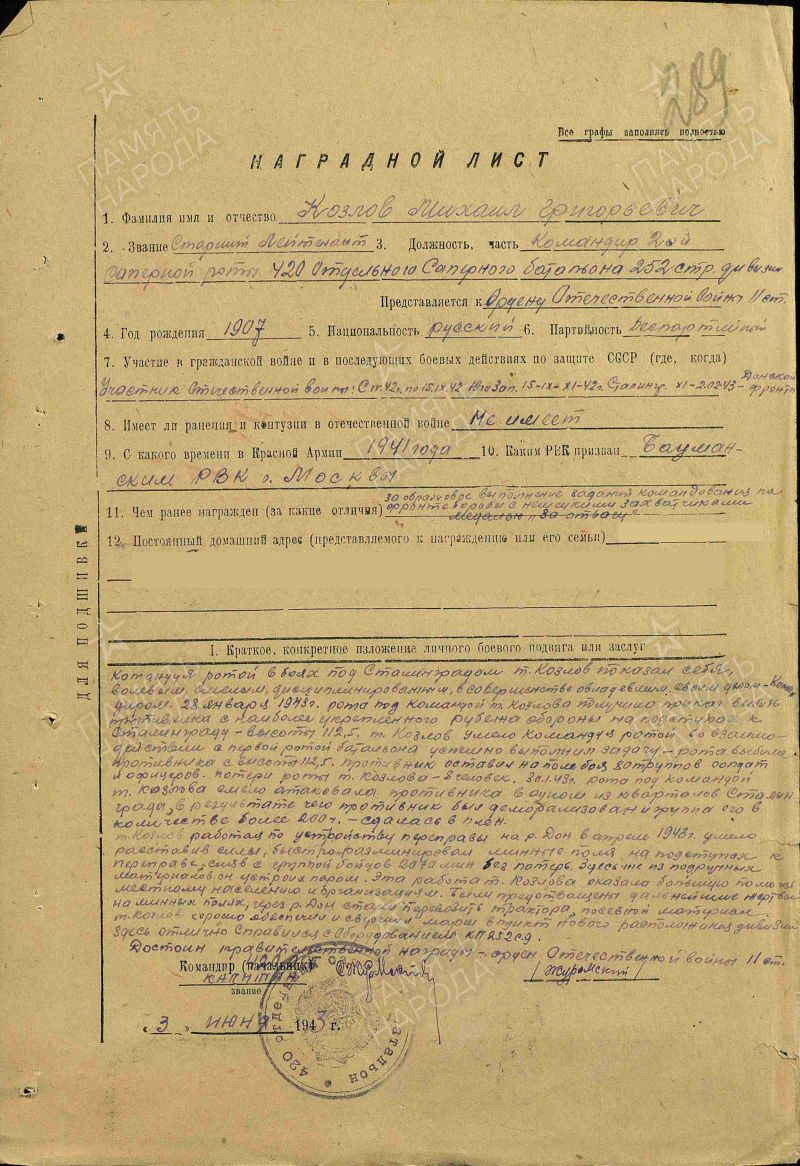 289
Все графы заполнять полностью
НАГРАДНОЙ ЛИСТ
1. Фамилия имя и отчество Козлов Михаил Григорьевич
2. Звание Старший Лейтенант 3. Должность, часть Командир 2ой
саперной роты 420 Отдельного Саперного батальона 252 стр. дивизии
Представляется к Ордену Отечественной Войны II ст.
4. Год рождения 1907 5. Национальность русский 6. Партийность беспартийный
7. Участие в гражданской войне и в последующих боевых действиях по защите СССР (где, когда)
Участник Отечественной войны: Ст. 42г. по 15.IX.42 Юго Зап. 15-IX-XI-42г. Сталингр. XI-2.02.43- Донской
фронты
8. Имеет ли ранения и контузии в отечественной войне Не имеет
9. С какого времени в Красной Армии 1941 года 10. Каким РВК призван Бауман-
ским РВК г. Москвы
за образцовое выполнение заданий командования на
фронте борьбы с немецкими захватчиками
11. Чем ранее награжден (за какие отличия) медалью "За отвагу"
12. Постоянный домашний адрес (представляемого к награждению или его семьи)
ДЛЯ ПОДШИВКИ
I. Краткое, конкретное изложение личного боевого подвига или заслуг
Командуя ротой в боях под Сталинградом т. Козлов показал себя,
волевым, смелым, дисциплинированным, в совершенстве овладевшим, своим делом - Коман-
диром. 28 января 1943г. рота под командой т. Козлова получила приказ выбить
противника с наиболее укрепленного рубежа обороны на подступах к
Сталинграду - высоты 112,5. т. Козлов умело командуя ротой во взаимо-
действии с первой ротой батальона успешно выполнил задачу - рота выбила
противника с высоты 112,5. противник оставил на поле боя 30 трупов солдат
и офицеров. потери роты т. Козлова - 3 человек. 30.1.43г. рота под командой
т. Козлова смело атаковала противника в одном из кварталов Сталин-
града, в результате чего противник был деморализован и группа его в
количестве более 200ч. - сдалась в плен.
т. Козлов работая по устройству переправы на р. Дон в апреле 1943г. умело
расставив силы, быстро разминировал минные поля на подступах к
переправе, сняв с группой бойцов 2070 мин без потерь. Здесь же из подручных
материалов он устроил паром. Эта работа т. Козлова оказала большую помощь
местному населению и организациям. Были предотвращены дальнейшие жертвы
на минных полях, через р. Дон стали перевозить трактора, посевной материал.
т. Козлов хорошо обеспечил и свой марш в пункт нового расположения дивизии
Здесь отлично справился с оборудованием КП 252 сд.
Достоин правительственной награды - орден Отечественной войны II ст.
Командир (начальник)
капитан
звание
/Журомский/
« 3 » июня 1943 г.
420 отдельный саперный батальон
ПАМЯТЬ НАРОДА